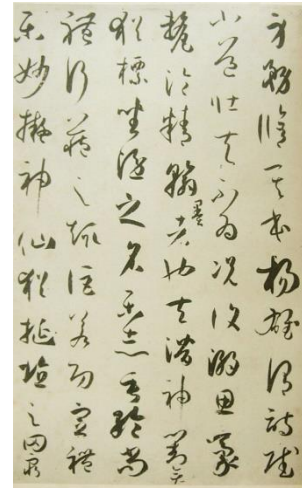 身務脩其本揚雄謂詩賦
小道壯夫不為況復溺思豪
氂淪精翰墨者也夫潛神對弈
猶標坐隱之名樂志垂綸尚
體行藏之趣詎若功宣禮
樂妙擬神仙猶埏埴之罔窮